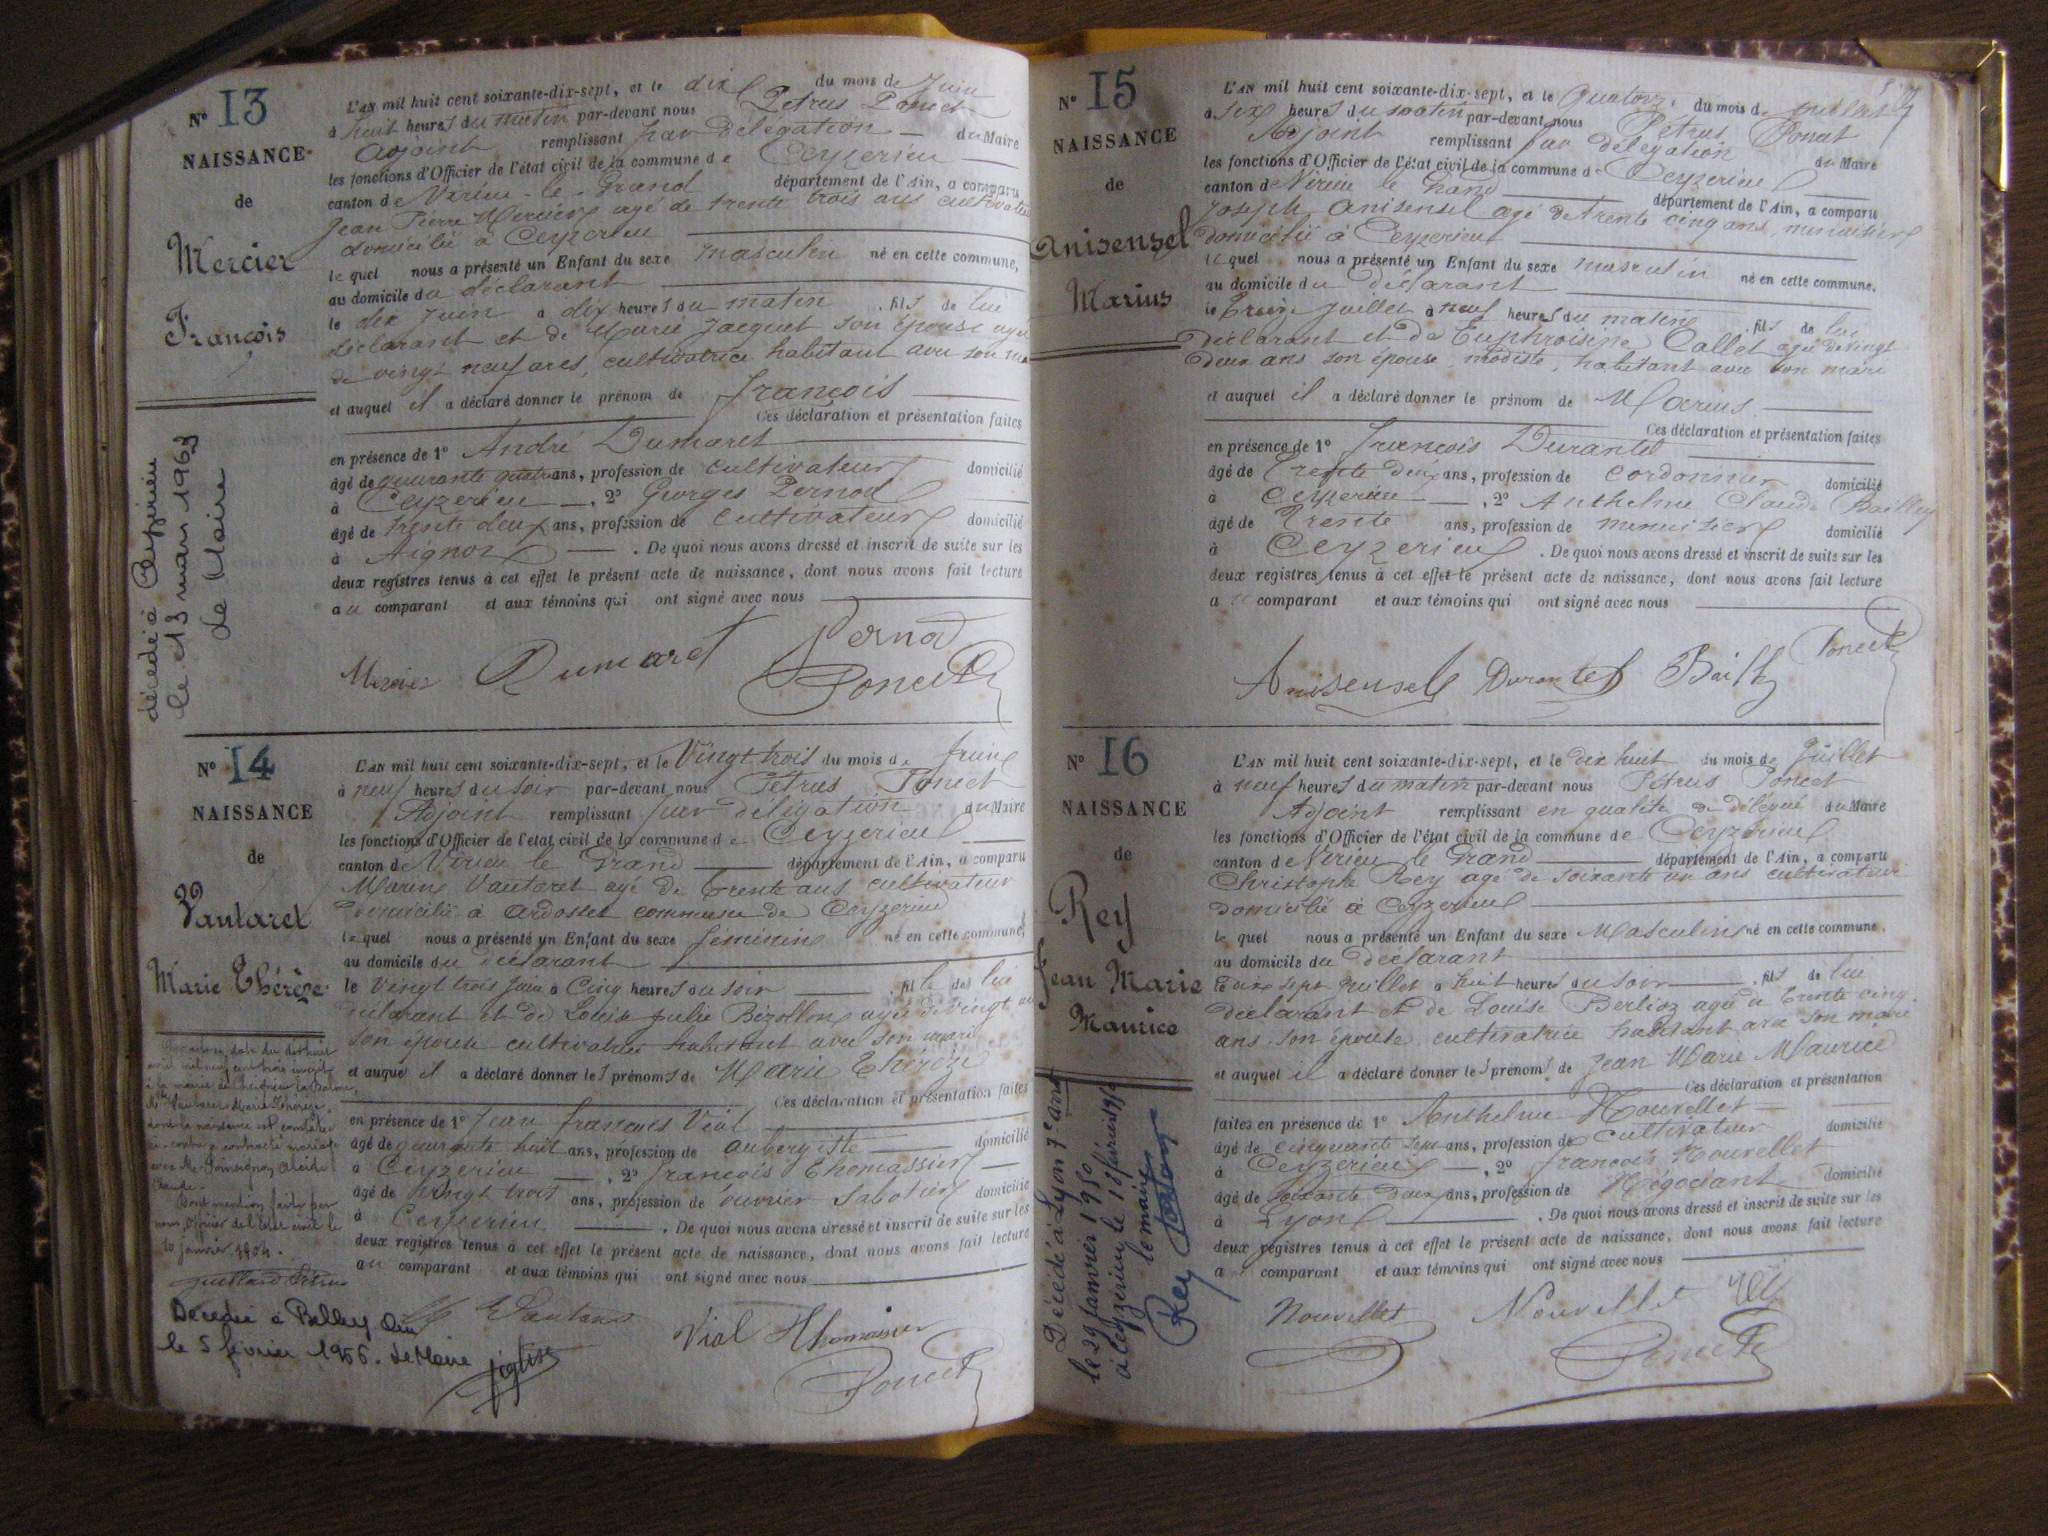 N° 13
NAISSANCE
de
Mercier
François
décédé à Ceyzérieu
le 13 mars 1963
Le Maire
L'AN mil huit cent soixante-dix-sept, et le dix du mois de Juin
à huit heures du matin par-devant nous Petrus Poncet
adjoint remplissant par délégation du Maire
les fonctions d'Officier de l'état civil de la commune de Ceyzerieu
canton de Virieu-le-Grand département de l'Ain, a comparu
Jean Pierre Mercier agé de trente trois ans cultivateur
domicilié à Ceyzerieu
le quel nous a présenté un Enfant du sexe masculin né en cette commune,
au domicile du déclarant
le dix Juin à dix heures du matin, fils de lui
déclarant et de Marie Jacquet son épouse agée
de vingt neuf ans, cultivatrice habitant avec son mari
et auquel il a déclaré donner le prénom de François
Ces déclaration et présentation faites
en présence de 1° André Dumaret
âgé de quarante quatre ans, profession de cultivateur domicilié
à Ceyzerieu, 2° Georges Pernod
âgé de trente deux ans, profession de cultivateur domicilié
à Aignoz. De quoi nous avons dressé et inscrit de suite sur les
deux registres tenus à cet effet le présent acte de naissance, dont nous avons fait lecture
au comparant et aux témoins qui ont signé avec nous
Mercier Dumaret Pernod
Poncet
N° 14
NAISSANCE
de
Vautaret
Marie Thérèze
L'AN mil huit cent soixante-dix-sept, et le Vingt trois du mois de Juin
à neuf heures du soir par-devant nous Pétrus Poncet
Adjoint remplissant par délégation du Maire
les fonctions d'Officier de l'état civil de la commune de Ceyzerieu
canton de Virieu le Grand département de l'Ain, a comparu
Marin Vautaret agé de trente ans cultivateur
domicilié à Ardosset commune de Ceyzerieu
le quel nous a présenté un Enfant du sexe féminin né en cette commune,
au domicile du déclarant
le vingt trois Juin à Cinq heures du soir, fille de lui
déclarant et de Louise Julie Bizollon agée de vingt
son épouse cultivatrice habitant avec son mari
et auquel il a déclaré donner les prénoms de Marie Thérèze
Ces déclaration et présentation faites
en présence de 1° Jean François Vial
âgé de quarante huit ans, profession de aubergiste domicilié
à Ceyzerieu, 2° François Thomassier
âgé de vingt trois ans, profession de ouvrier sabotier domicilié
à Ceyzerieu. De quoi nous avons dressé et inscrit de suite sur les
deux registres tenus à cet effet le présent acte de naissance, dont nous avons fait lecture
au comparant et aux témoins qui ont signé avec nous
à la mairie de
Vautaret Marie Thérèze,
dont la naissance est constatée
ci-contre a contracté mariage
avec M.
Claude.
Dont mention faite par
nous officier de l'état civil le
10 janvier 1904.
Décédée à Belley Ain
le 5 février 1956. Le Maire
Vautaret Vial Thomassier
Poncet
N° 15
NAISSANCE
de
Anisensel
Marius
L'AN mil huit cent soixante-dix-sept, et le Quatorze du mois de Juillet
à six heures du matin par-devant nous Pétrus Poncet
Adjoint remplissant par délégation du Maire
les fonctions d'Officier de l'état civil de la commune de Ceyzerieu
canton de Virieu le Grand département de l'Ain, a comparu
Joseph Anisensel agé de trente cinq ans, menuisier
domicilié à Ceyzerieu
le quel nous a présenté un Enfant du sexe masculin né en cette commune,
au domicile du déclarant
le treize Juillet à neuf heures du matin, fils de lui
déclarant et de Euphroisine Callet agée de vingt
deux ans son épouse, modiste, habitant avec son mari
et auquel il a déclaré donner le prénom de Marius
Ces déclaration et présentation faites
en présence de 1° François Durantel
âgé de trente deux ans, profession de cordonnier domicilié
à Ceyzerieu, 2° Anthelme Claude Bailly
âgé de Trente ans, profession de menuisier domicilié
à Ceyzerieu. De quoi nous avons dressé et inscrit de suite sur les
deux registres tenus à cet effet le présent acte de naissance, dont nous avons fait lecture
au comparant et aux témoins qui ont signé avec nous
Anisensel Durantel Bailly Poncet
N° 16
NAISSANCE
de
Rey
Jean Marie
Maurice
Décédé à Lyon 7e arrt
le 29 janvier 1950
à Ceyzerieu le 18 février 1950
le maire
L'AN mil huit cent soixante-dix-sept, et le dix huit du mois de Juillet
à neuf heures du matin par-devant nous Pétrus Poncet
Adjoint remplissant en qualité de délégué du Maire
les fonctions d'Officier de l'état civil de la commune de Ceyzérieu
canton de Virieu le Grand département de l'Ain, a comparu
Christophe Rey agé de soixante un ans cultivateur
domicilié à Ceyzerieu
le quel nous a présenté un Enfant du sexe Masculin né en cette commune,
au domicile du déclarant
le dix sept Juillet à huit heures du soir, fils de lui
déclarant et de Louise Berlioz agée de trente cinq
ans, son épouse, cultivatrice habitant avec son mari
et auquel il a déclaré donner les prénoms de Jean Marie Maurice
Ces déclaration et présentation
faites en présence de 1° Anthelme Nouvellet
âgé de cinquante sept ans, profession de cultivateur domicilié
à Ceyzerieu, 2° François Nouvellet
âgé de soixante deux ans, profession de Négociant domicilié
à Lyon. De quoi nous avons dressé et inscrit de suite sur les
deux registres tenus à cet effet le présent acte de naissance, dont nous avons fait lecture
au comparant et aux témoins qui ont signé avec nous
Nouvellet Nouvellet Rey
Poncet